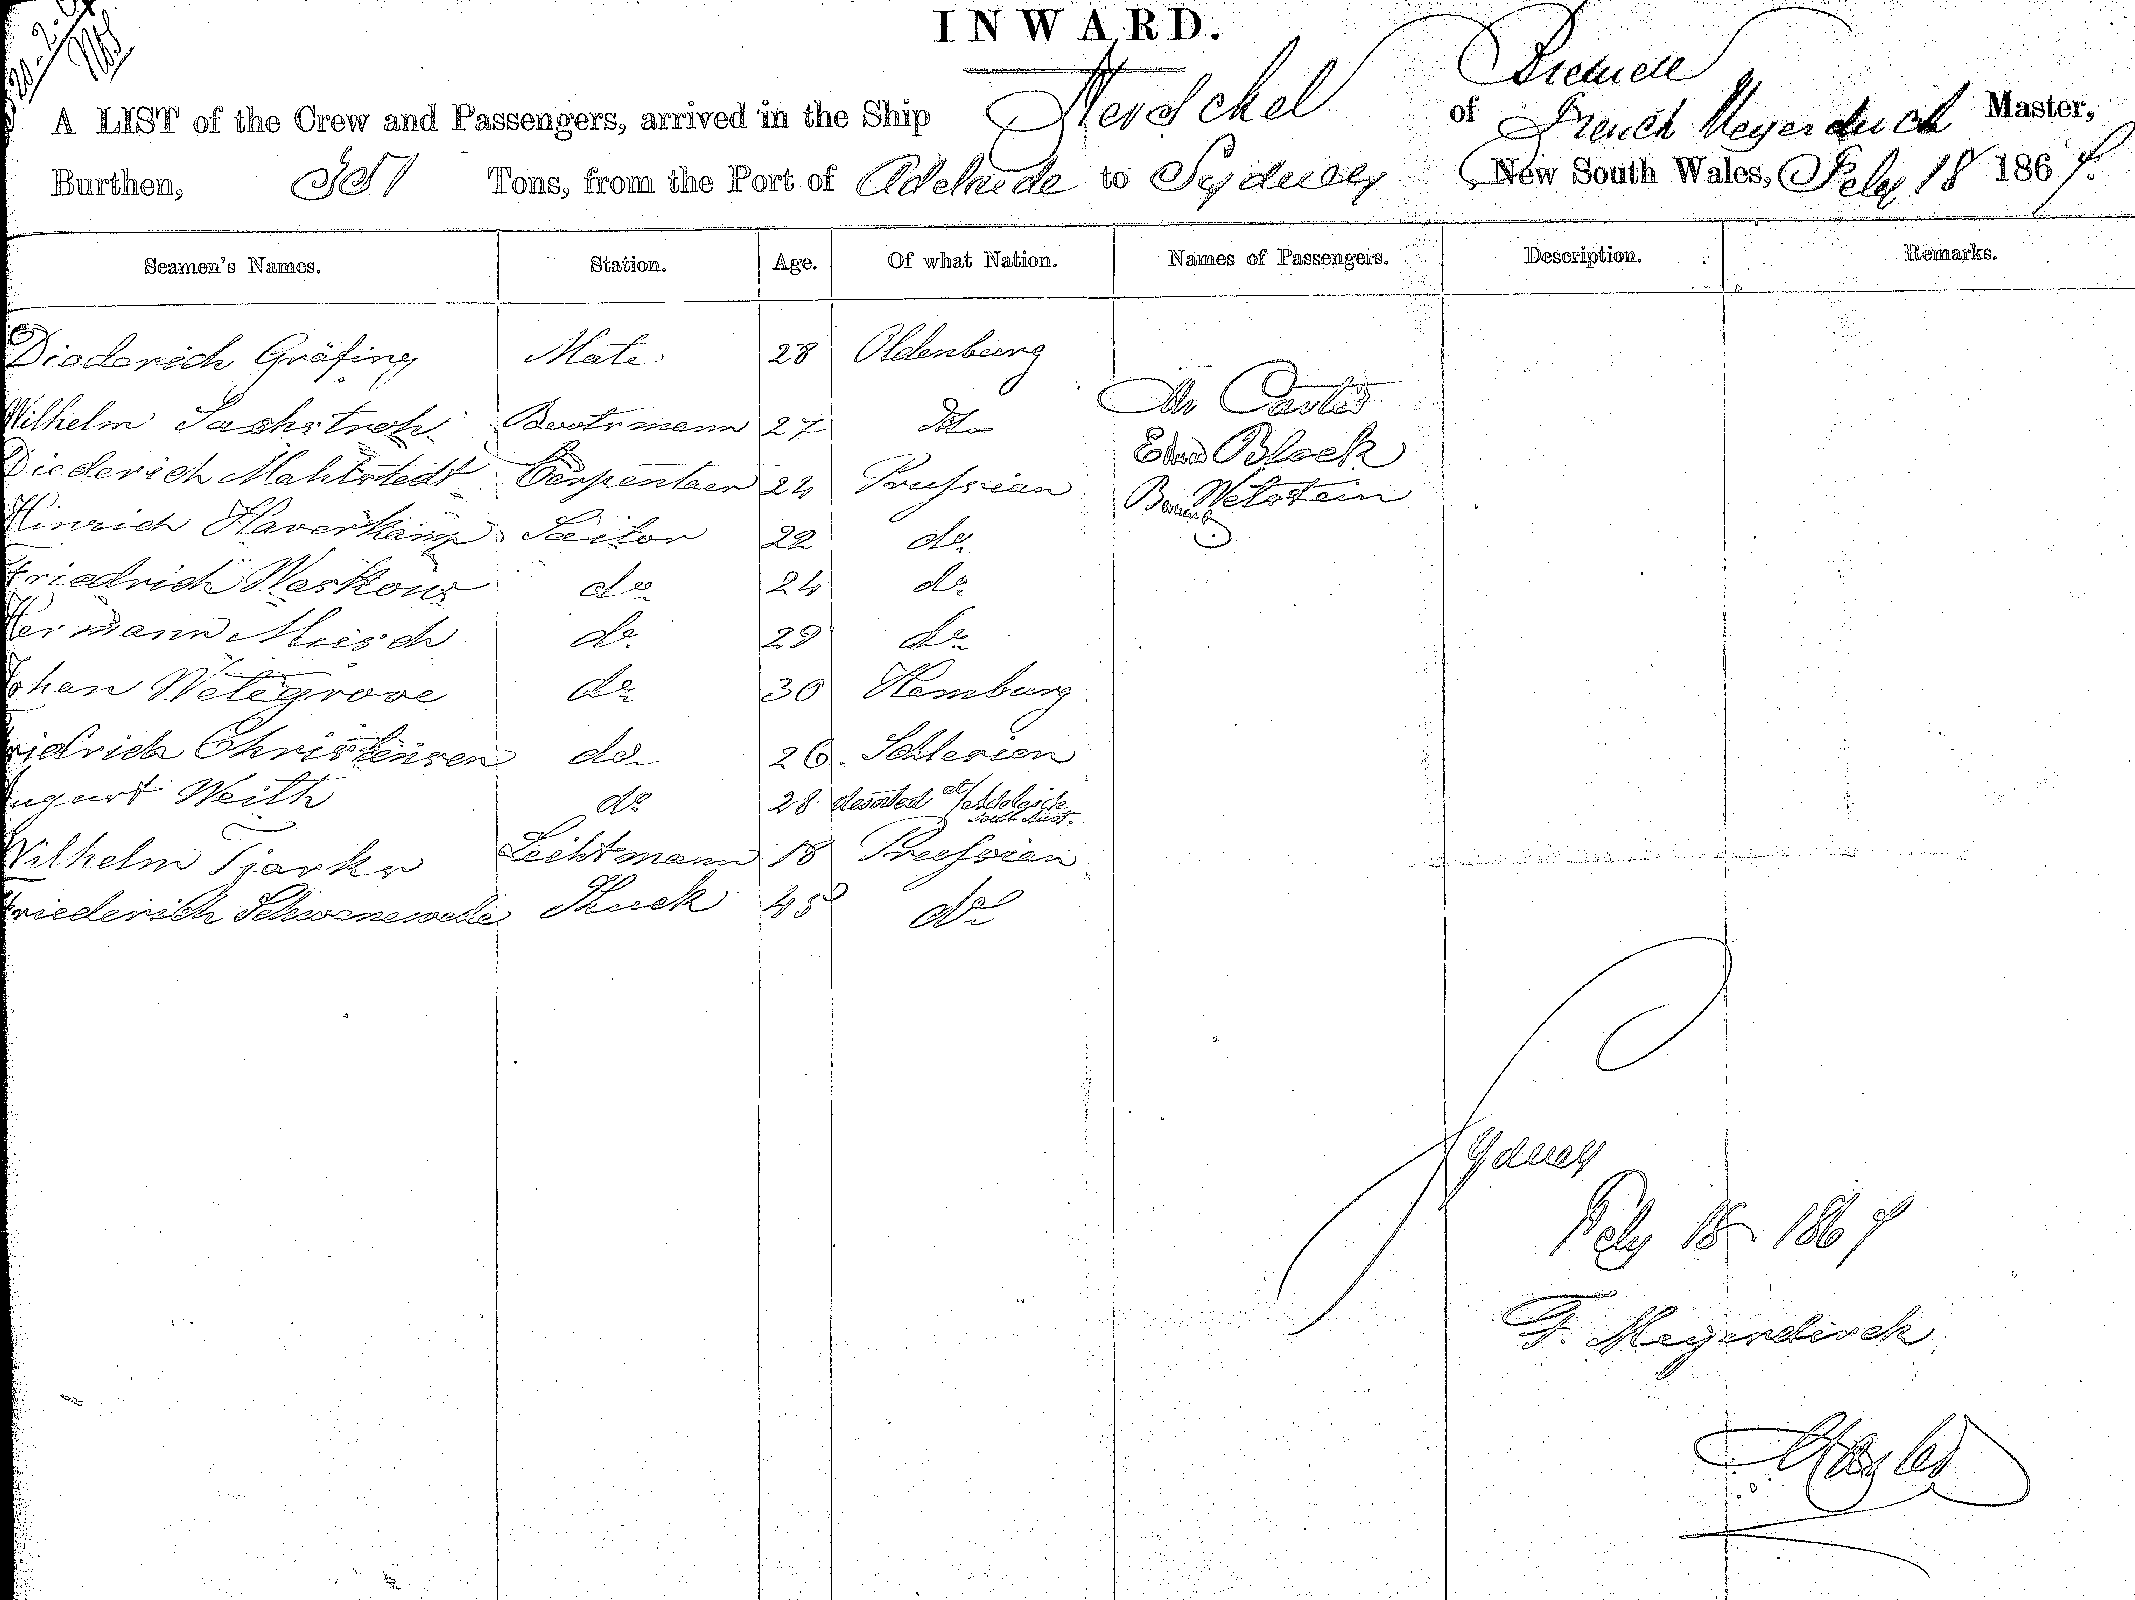 INWARD.
A LIST of the Crew and Passengers, arrived in the Ship Herschel of Master,
Burthen, 351 Tons, from the Port of Adelaide to Sydney New South Wales, Feby 18 1867.
Seamen's Names. Station. Age. Of what Nation. Names of Passengers. Description. Remarks.
Diederich Gräfing Mate 28 Oldenburg
Mr Carter
Wilhelm Sachstroh Bootsmann 27 do
Block
Diederich Mahlstedt Carpentaer 24 Prussian
Wetstein
Hinrich Haverkamp Seilor 22 do
Friedrich Waskow do 24 do
Hermann Miesch do 29 do
Johan Wetegrove do 30 Hamburg
Fridrich Christensen do 26 Schlesien
August Weith do 28 deserted at Adelaide South Aust.
Wilhelm Tjarks Leichtmann 18 Preussian
Friederich Schwanewede Kuck 45 do
Sydney
Feby 18 1867
F. Meyerdirck